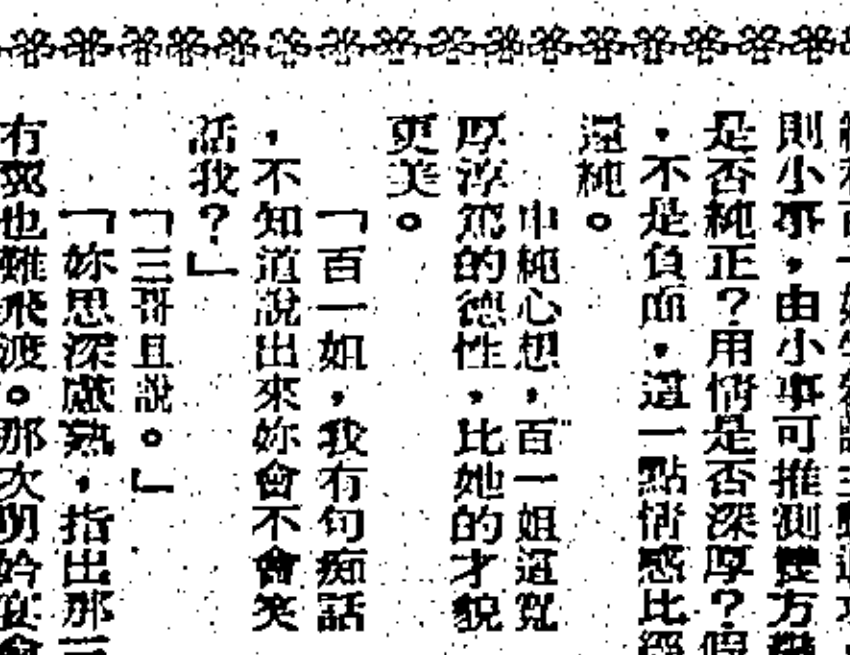 則小事，由小事可推測雙方
是否純正？用情是否深厚？假
，不是負面，這一點情感比
還純。
申純心想，百一姐這寬
厚淳篤的德性，比她的才貌
更美。
「百一姐，我有句痴話
，不知道說出來妳會不會笑
話我？」
「三哥且說。」
「妳思深慮熟，指出那
有翼也難飛渡。那次